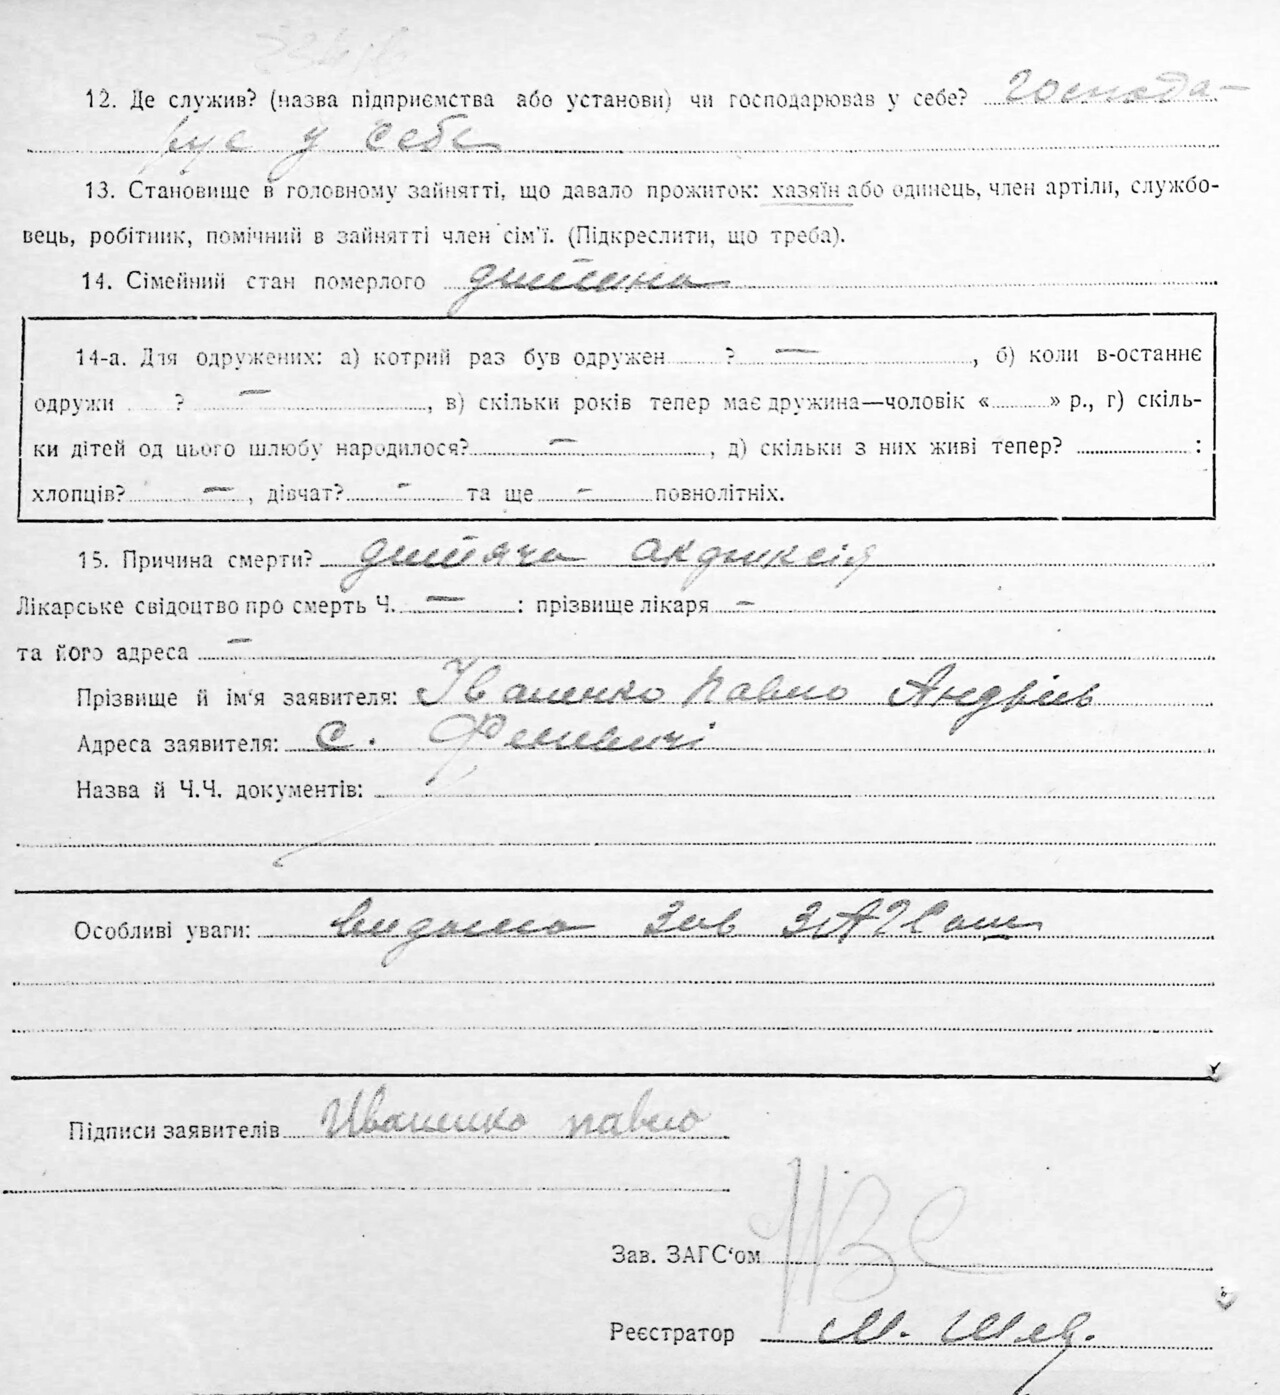 12. Де служив? (назва підприємства або установи) чи господарював у себе? господа-
рує у себе
13. Становище в головному зайнятті, що давало прожиток: хазяїн або одинець, член артіли, службо-
вець, робітник, помічний в зайнятті член сім'ї. (Підкреслити, що треба).
14. Сімейний стан померлого дитина
14-а. Для одружених: а) котрий раз був одружен ? —, б) коли в-останнє
одружи ? —, в) скільки років тепер має дружина—чоловік «» р., г) скіль-
ки дітей од цього шлюбу народилося? —, д) скільки з них живі тепер? :
хлопців? —, дівчат? - та ще - повнолітніх.
15. Причина смерти? дитяча
Лікарське свідоцтво про смерть Ч. — : прізвище лікаря -
та його адреса —
Прізвище й ім'я заявителя: Іваненко Павло Андрієв
Адреса заявителя: с.
Назва й Ч.Ч. документів:
Особливі уваги: видано Зав
Підписи заявителів Иваненко павло
Зав. ЗАГС'ом
Реєстратор М.